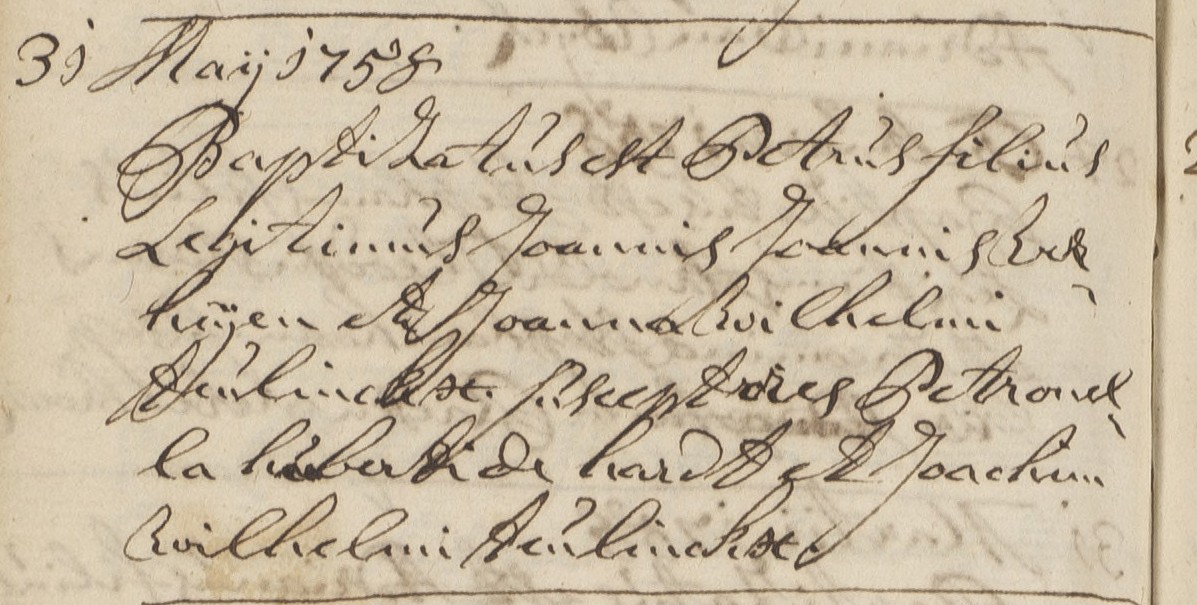 31 Maij 1758
Baptizatus est Petrus filius
Legitimus Joannis Joannis Ver
huijen et Joanna Wilhelmi
Teulinckx. susceptores Petronel
la huberti de hardt et Joachim
Wilhelmi teulinckx